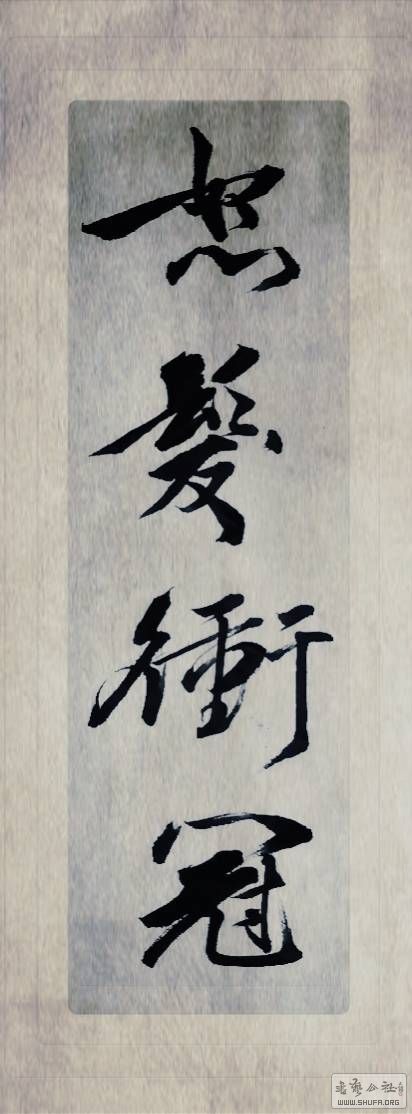 怒髮衝冠
书艺公社
WWW.SHUFA.ORG